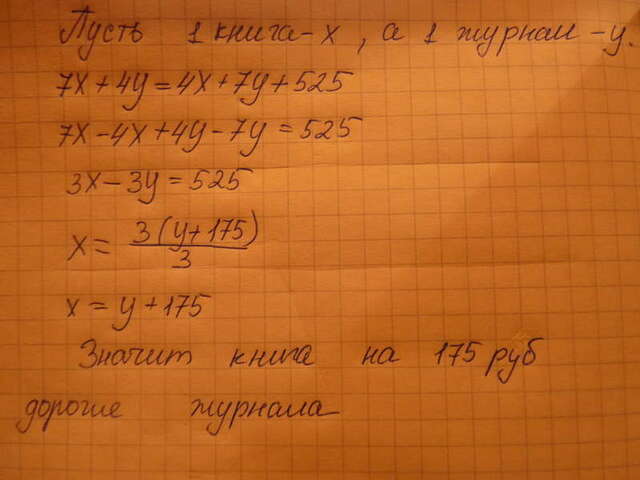 Пусть 1 книга - x, а 1 журнал - y.
7x + 4y = 4x + 7y + 525
7x - 4x + 4y - 7y = 525
3x - 3y = 525
x = 3(y + 175) / 3
x = y + 175
Значит книга на 175 руб
дороже журнала